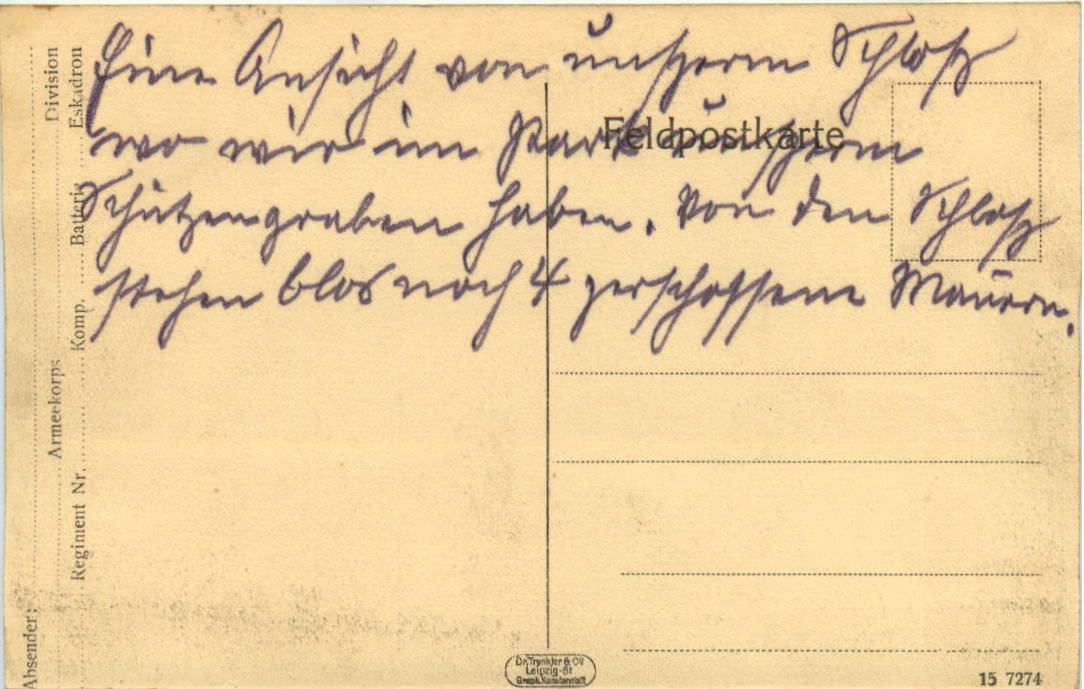 Eine Ansicht von unsserm Schloß
wo wir im Park unsserm
Schützengraben haben. Von den Schloß
stehen blos noch 4 zerschossene Mauern.
Feldpostkarte
Absender:
Armeekorps Division
Regiment Nr. Komp. Batterie Eskadron
Dr. Trenkler & Co
Leipzig-St
Graph. Kunstanstalt
15 7274